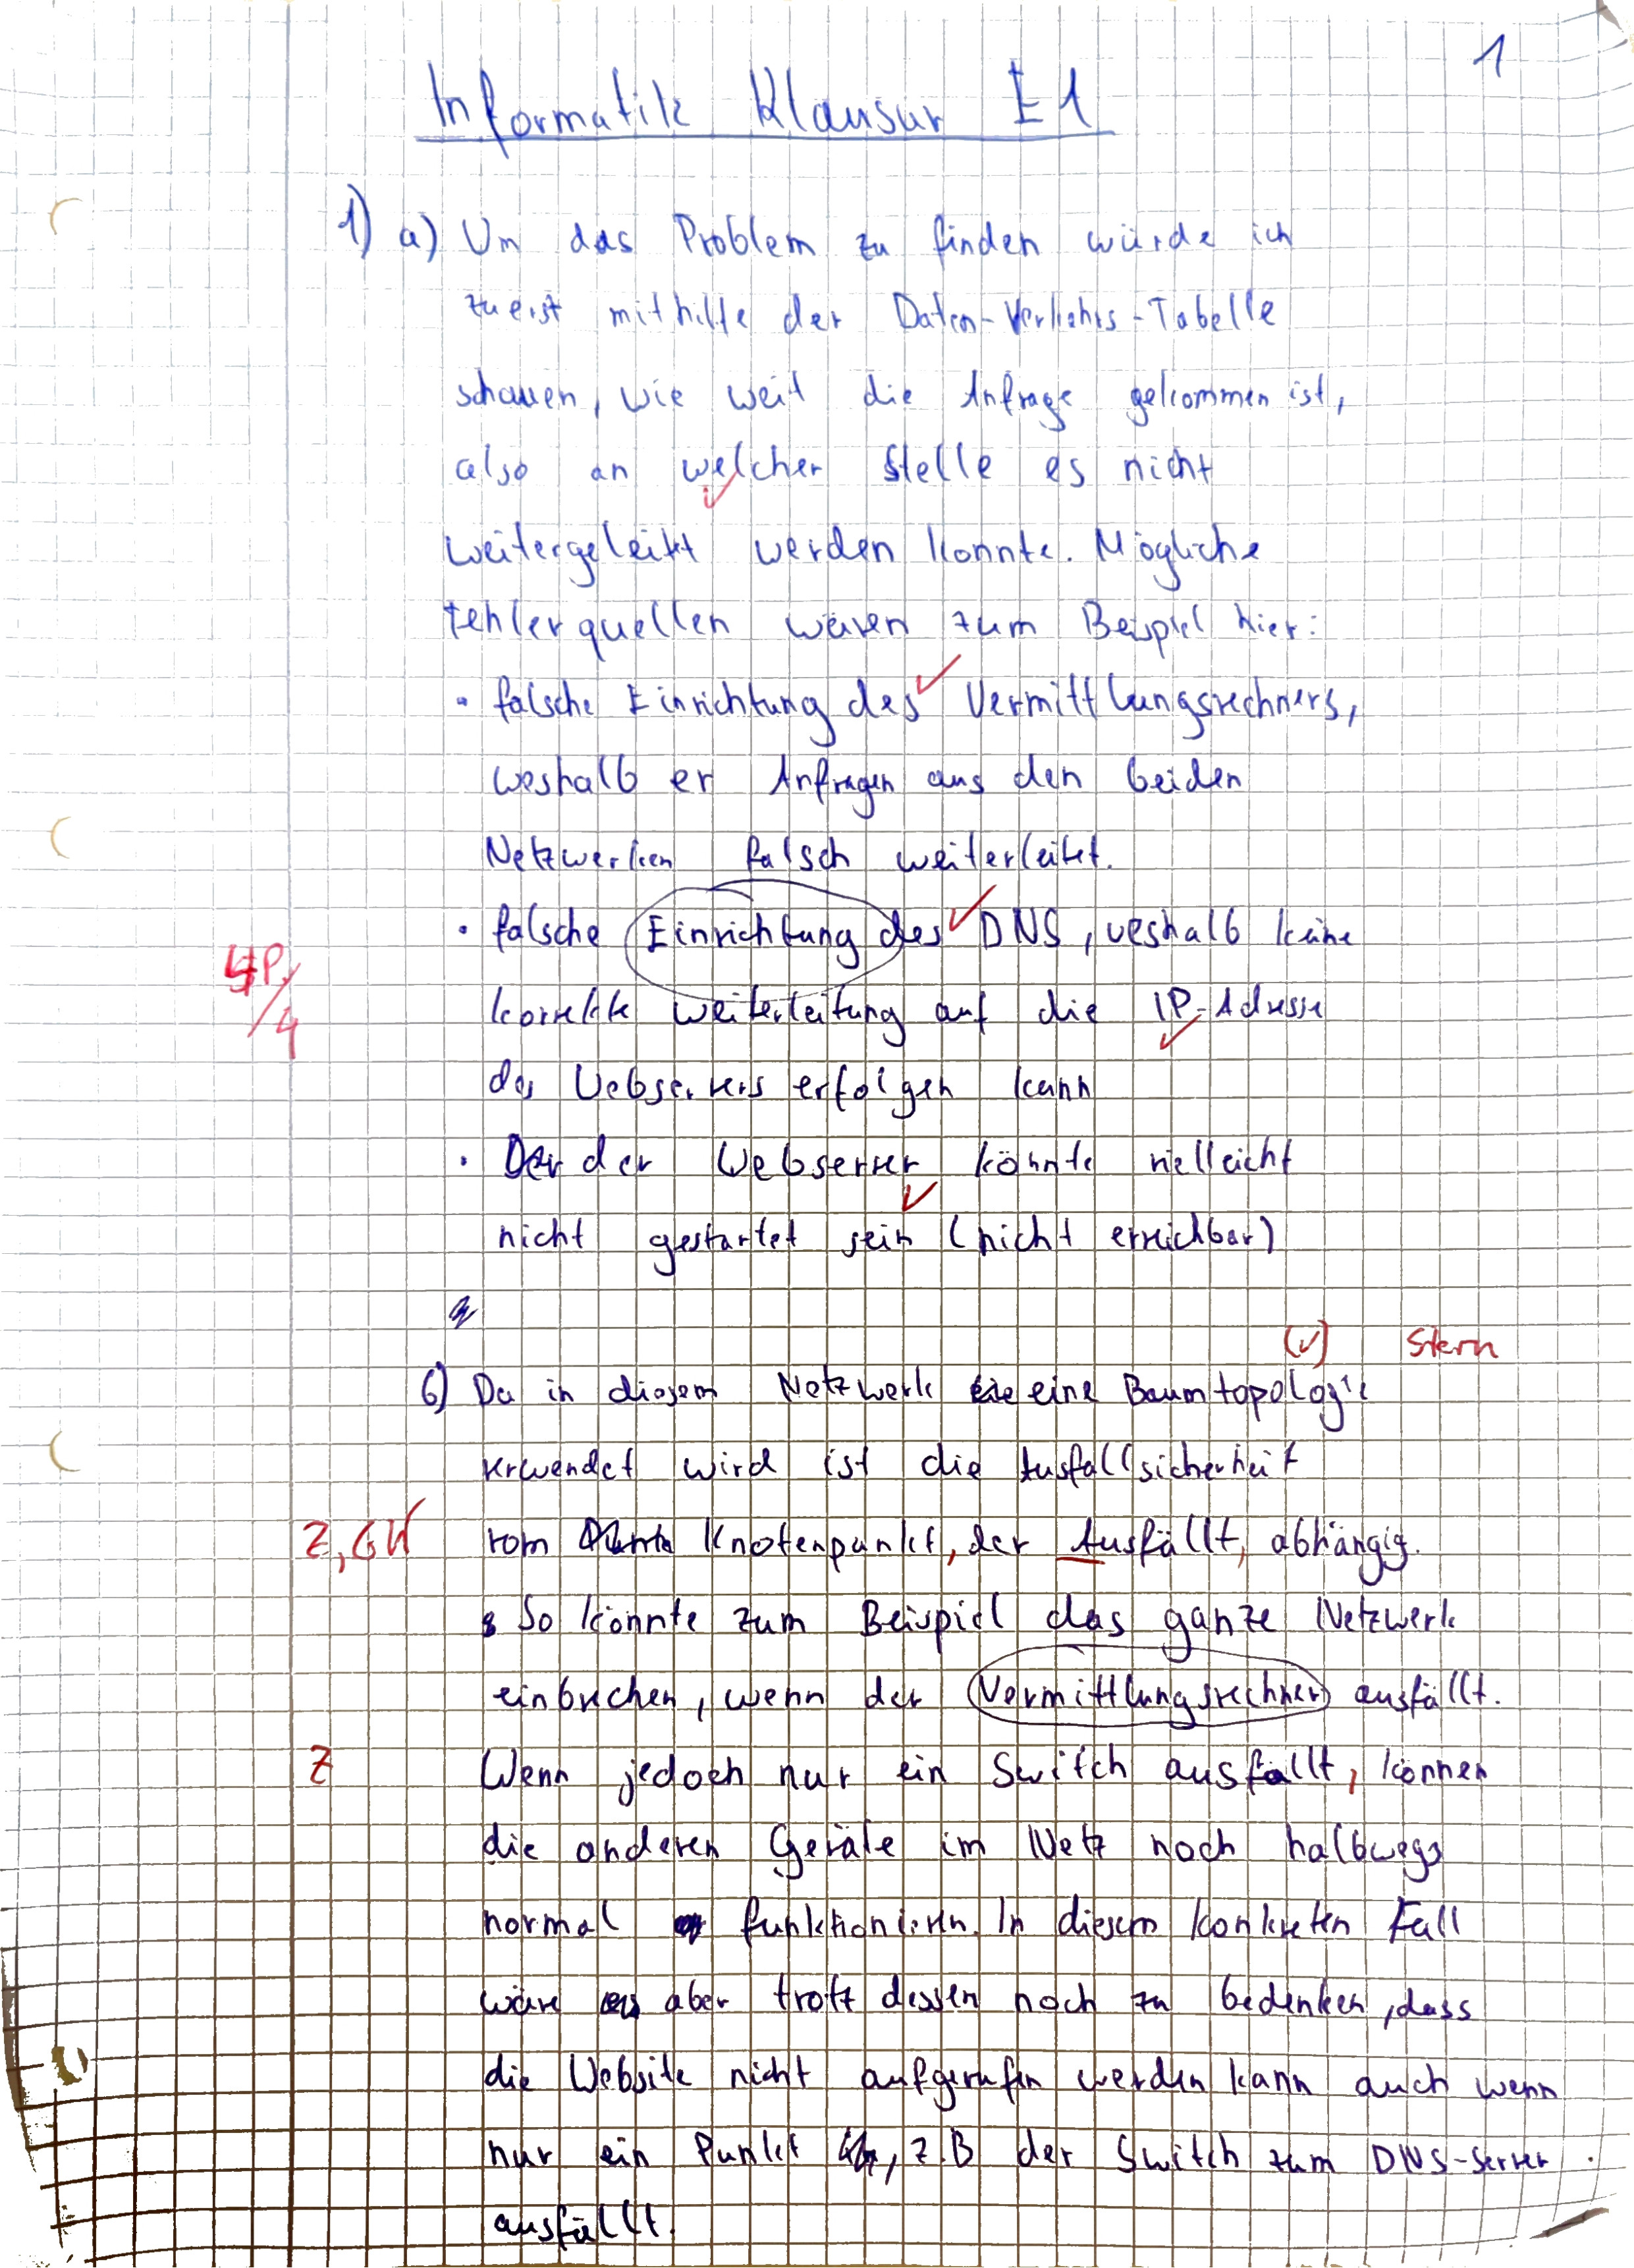 1
Informatik Klausur E1
1) a) Um das Problem zu finden würde ich
zuerst mithilfe der Daten-Verkehrs-Tabelle
schauen, wie weit die Anfrage gekommen ist,
also an welcher Stelle es nicht
weitergeleitet werden konnte. Mögliche
Fehlerquellen wären zum Beispiel hier:
• falsche Einrichtung des Vermittlungsrechners,
weshalb er Anfragen aus den beiden
Netzwerken falsch weiterleitet.
• falsche Einrichtung des DNS, weshalb keine
4P/4
korrekte Weiterleitung auf die IP-Adresse
des Webservers erfolgen kann
• der Webserver könnte vielleicht
nicht gestartet sein (nicht erreichbar)
(✓) Stern
b) Da in diesem Netzwerk eine Baumtopologie
verwendet wird ist die Ausfallsicherheit
Z, GK vom Knotenpunkt, der Ausfällt, abhängig.
So könnte zum Beispiel das ganze Netzwerk
einbrechen, wenn der Vermittlungsrechner ausfällt.
Z Wenn jedoch nur ein Switch ausfällt, können
die anderen Geräte im Netz noch halbwegs
normal funktionieren. In diesem konkreten Fall
wäre aber trotz dessen noch zu bedenken, dass
die Website nicht aufgerufen werden kann auch wenn
nur ein Punkt, z.B der Switch zum DNS-Server
ausfällt.